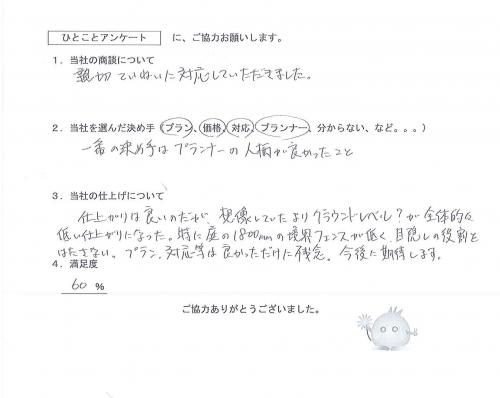 ひとことアンケート に、ご協力お願いします。
1．当社の商談について
親切ていねいに対応していただきました。
2．当社を選んだ決め手（プラン、価格、対応、プランナー、分からない、など。。。）
一番の決め手はプランナーの人柄が良かったこと
3．当社の仕上げについて
仕上がりは良いのだが、想像していたよりグラウンドレベル？が全体的に
低い仕上がりになった。特に庭の1800mmの境界フェンスが低く、目隠しの役割を
はたさない。プラン、対応等は良かっただけに残念。今後に期待します。
4．満足度
60 %
ご協力ありがとうございました。